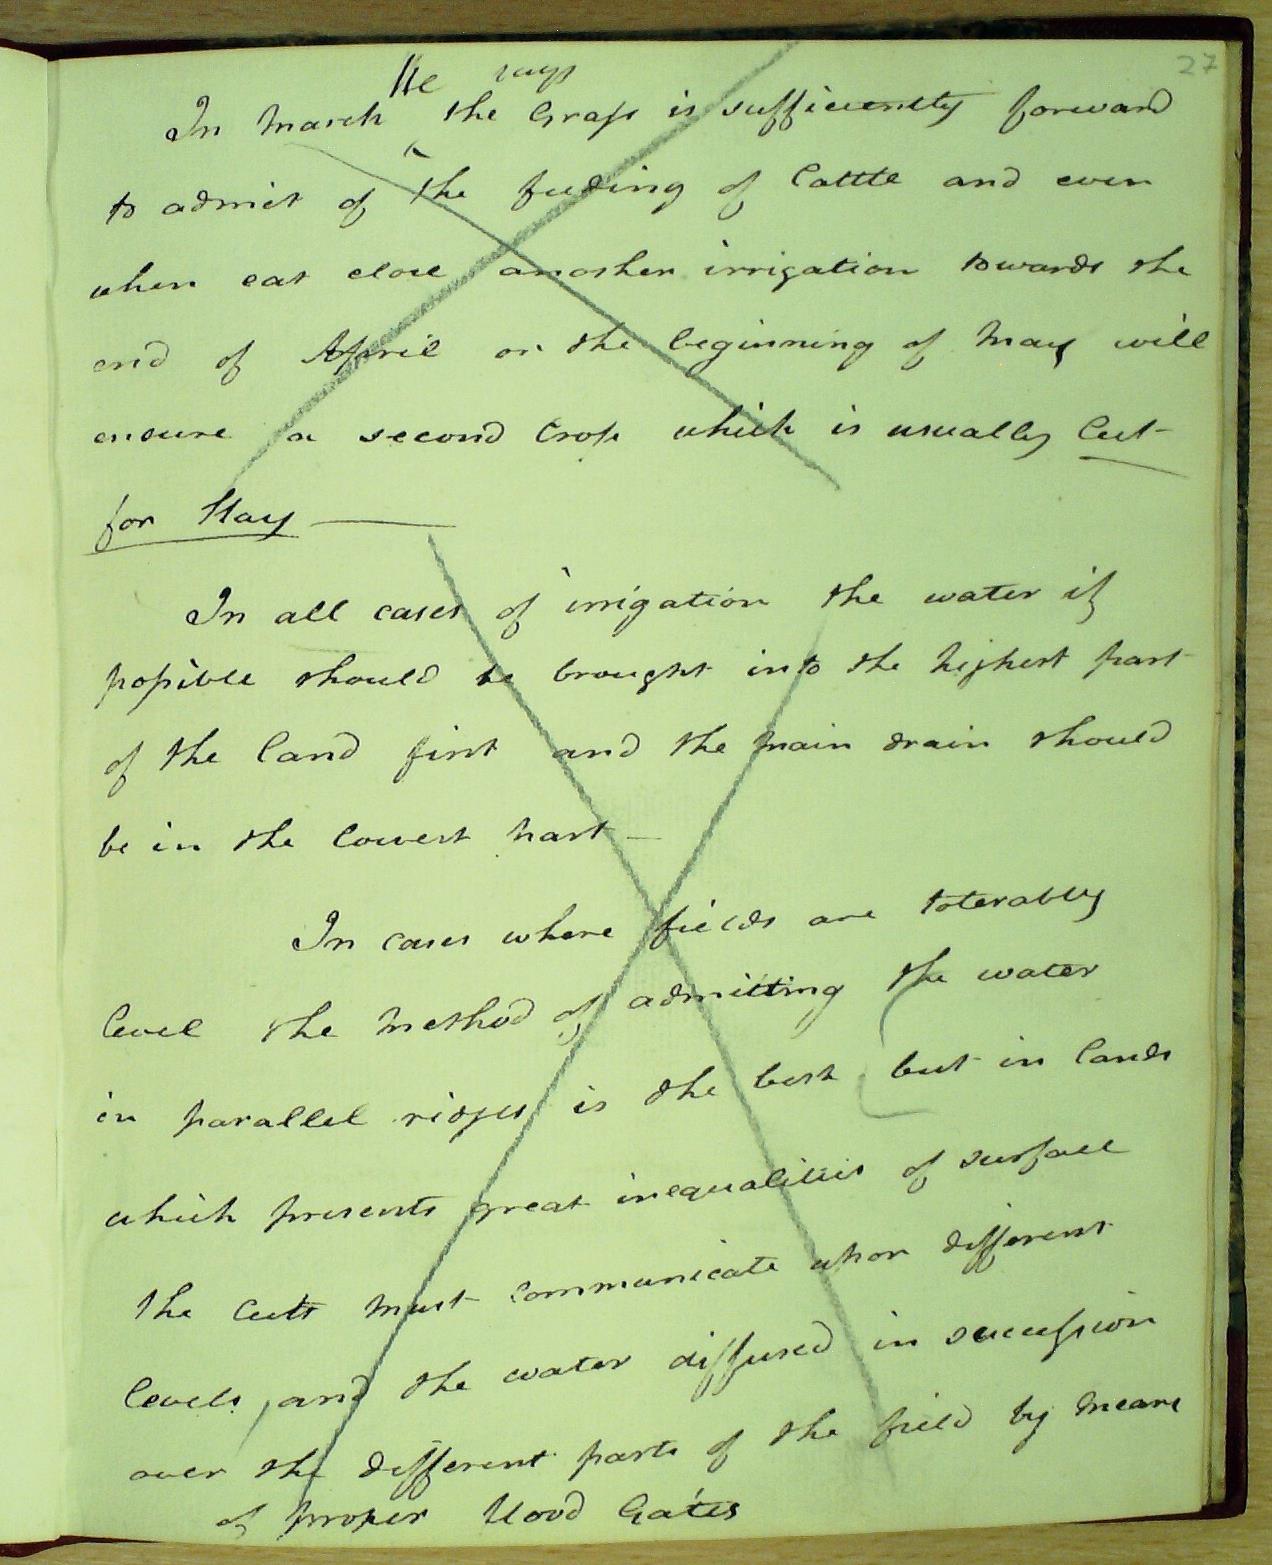 27
He says
In March the Grass is sufficiently forward
to admit of the feeding of Cattle and even
when eat close another irrigation towards the
end of April or the beginning of May will
ensure a second Crop which is usually Cut
for Hay —
In all cases of irrigation the water if
possible should be brought into the highest part
of the land first and the main drain should
be in the lowest part —
In cases where fields are tolerably
level the method of admitting the water
in parallel ridges is the best but in lands
which presents great inequalities of surface
the Cuts must communicate upon different
levels, and the water diffused in succession
over the different parts of the field by means
of proper flood Gates